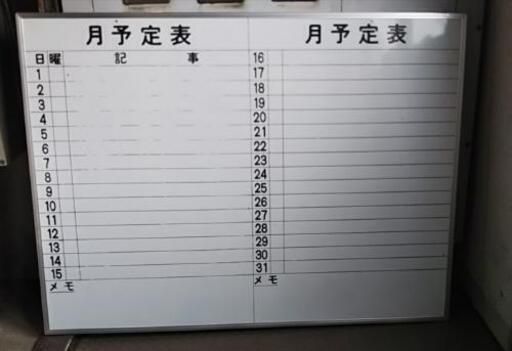 月予定表
日 曜 記 事
1
2
3
4
5
6
7
8
9
10
11
12
13
14
15
メモ
月予定表
16
17
18
19
20
21
22
23
24
25
26
27
28
29
30
31
メモ